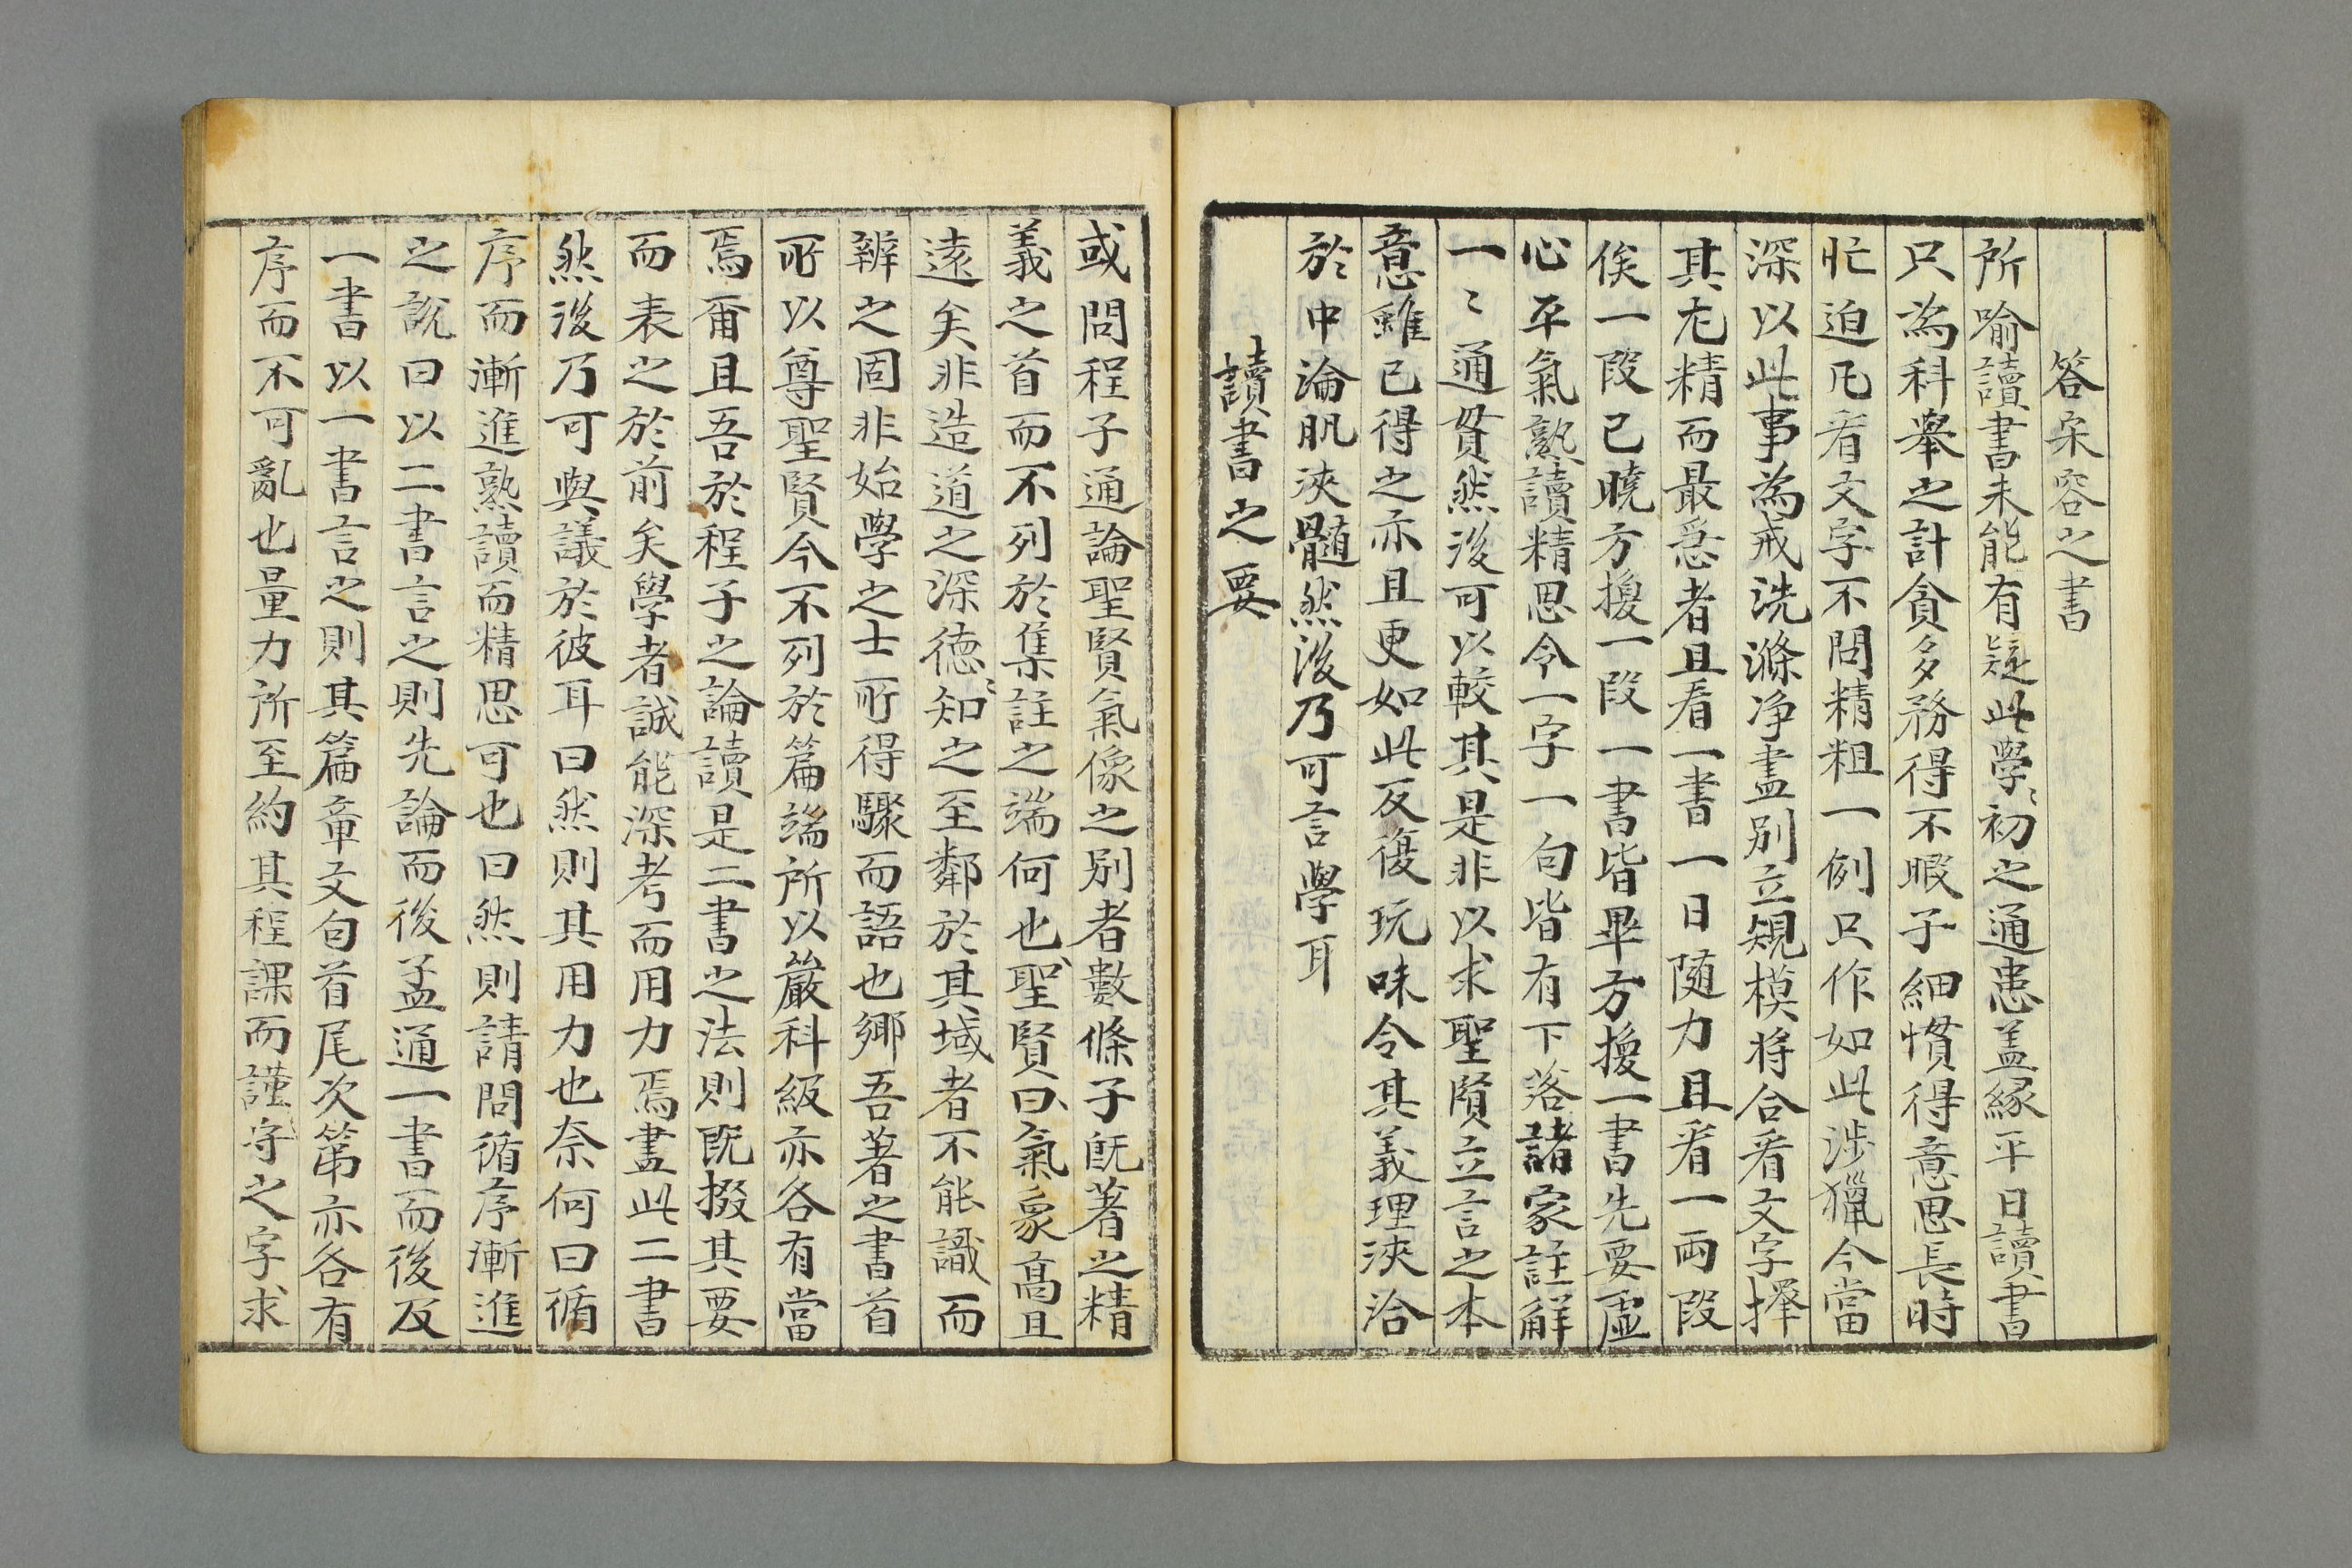 答朶容之書
所喻讀書未能有疑此學〻初之通患盖緣平日讀書
只為科舉之計貪多務得不暇子細慣得意思長時
忙迫凡看文字不問精粗一例只作如此涉獵今當
深以此事為戒洗滌净盡别立規模将合看文字擇
其尤精而最急者且看一書一日随力且看一兩段
俟一段已曉方換一段一書皆畢方換一書先要虛
心平氣熟讀精思令一字一句皆有下落諸家註解
一〻通貫然後可以較其是非以求聖賢立言之本
意雖已得之亦且更如此反復玩味令其義理浹洽
於中淪肌浹髓然後乃可言學耳
讀書之要
或問程子通論聖賢氣像之别者數條子旣著之精
義之首而不列於集註之端何也聖賢曰氣象高且
遠矣非造道之深德〻知之至鄰於其域者不能識而
辨之固非始學之士所得驟而語也鄉吾著之書首
所以尊聖賢今不列於篇端所以嚴科級亦各有當
焉爾且吾於程子之論讀是二書之法則旣掇其要
而表之於前矣學者誠能深考而用力焉盡此二書
然後乃可與議於彼耳曰然則其用力也奈何曰循
序而漸進熟讀而精思可也曰然則請問循序漸進
之說曰以二書言之則先論而後孟通一書而後及
一書以一書言之則其篇章文句首尾次第亦各有
序而不可亂也量力所至約其程課而謹守之字求